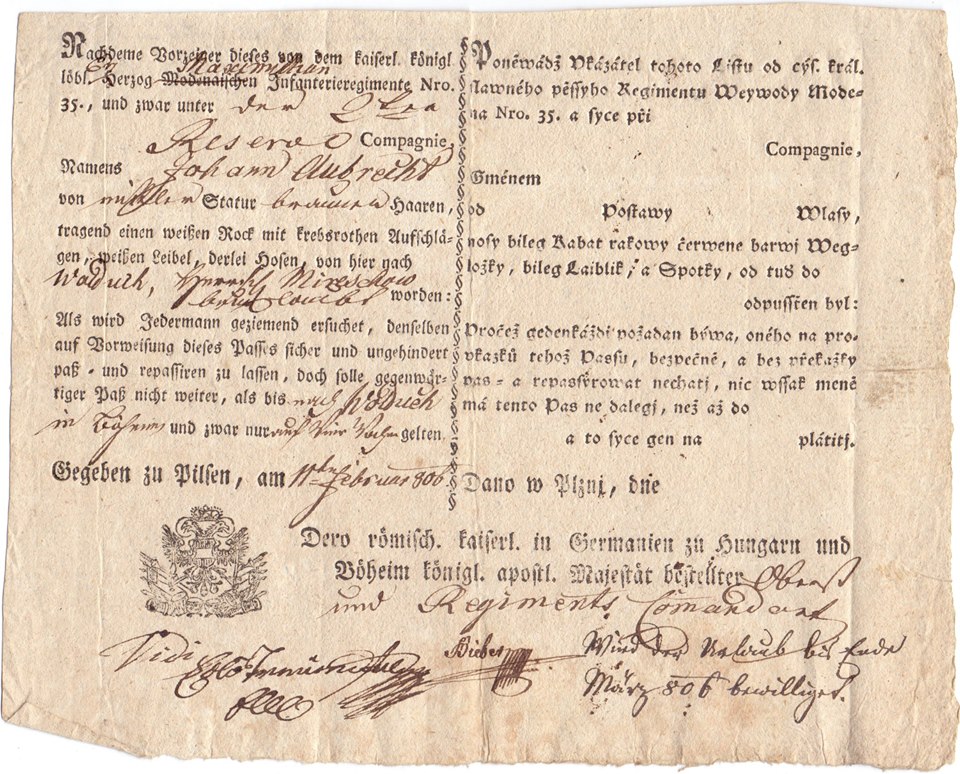 Nachdeme Vorzeiger dieses von dem kaiserl. königl.
Erz Maximilian
löbl. Herzog Modenaischen Infanterieregimente Nro.
35., und zwar unter der 2ten
Reserve Compagnie,
Namens Johann Aubrecht
von mittler Statur braunen Haaren,
tragend einen weißen Rock mit krebsrothen Aufschlä-
gen, weißen Leibel, derlei Hosen, von hier nach
Woduch, Herrsch Miröschau
beurlaubt worden:
Als wird Jedermann geziemend ersuchet, denselben
auf Vorweisung dieses Passes sicher und ungehindert
paß- und repassiren zu lassen, doch solle gegenwär-
tiger Paß nicht weiter, als bis nach Woduch
in Böhmen und zwar nur auf Vier Wochen gelten.
Gegeben zu Pilsen, am 11ten Februar 806
Poněwádž Vkázátel tohoto Listu od cýs. král.
slawného pěssyho Regimentu Weywody Mode-
na Nro. 35. a syce při
Compagnie,
Gménem
od Postawy Wlasy,
nosy bileg Kabat rakowy čerwene barwj Weg-
ložky, bileg Laiblik, a Spotky, od tud do
odpussčen byl:
Pročež gedenkáždi požadan býwa, oného na pro-
vkazků tehož Passu, bezpečně, a bez překažky
pas- a repassýrowat nechatj, nic wssak meně
má tento Pas ne dalegj, než až do
a to syce gen na plátitj.
Dano w Plznj, dne
Dero römisch. kaiserl. in Germanien zu Hungarn und
Böheim königl. apost. Majestät bestellter Oberst
und Regiments Comandant
Vidi
Wird der Urlaub bis Ende
März 806 bewilliget.